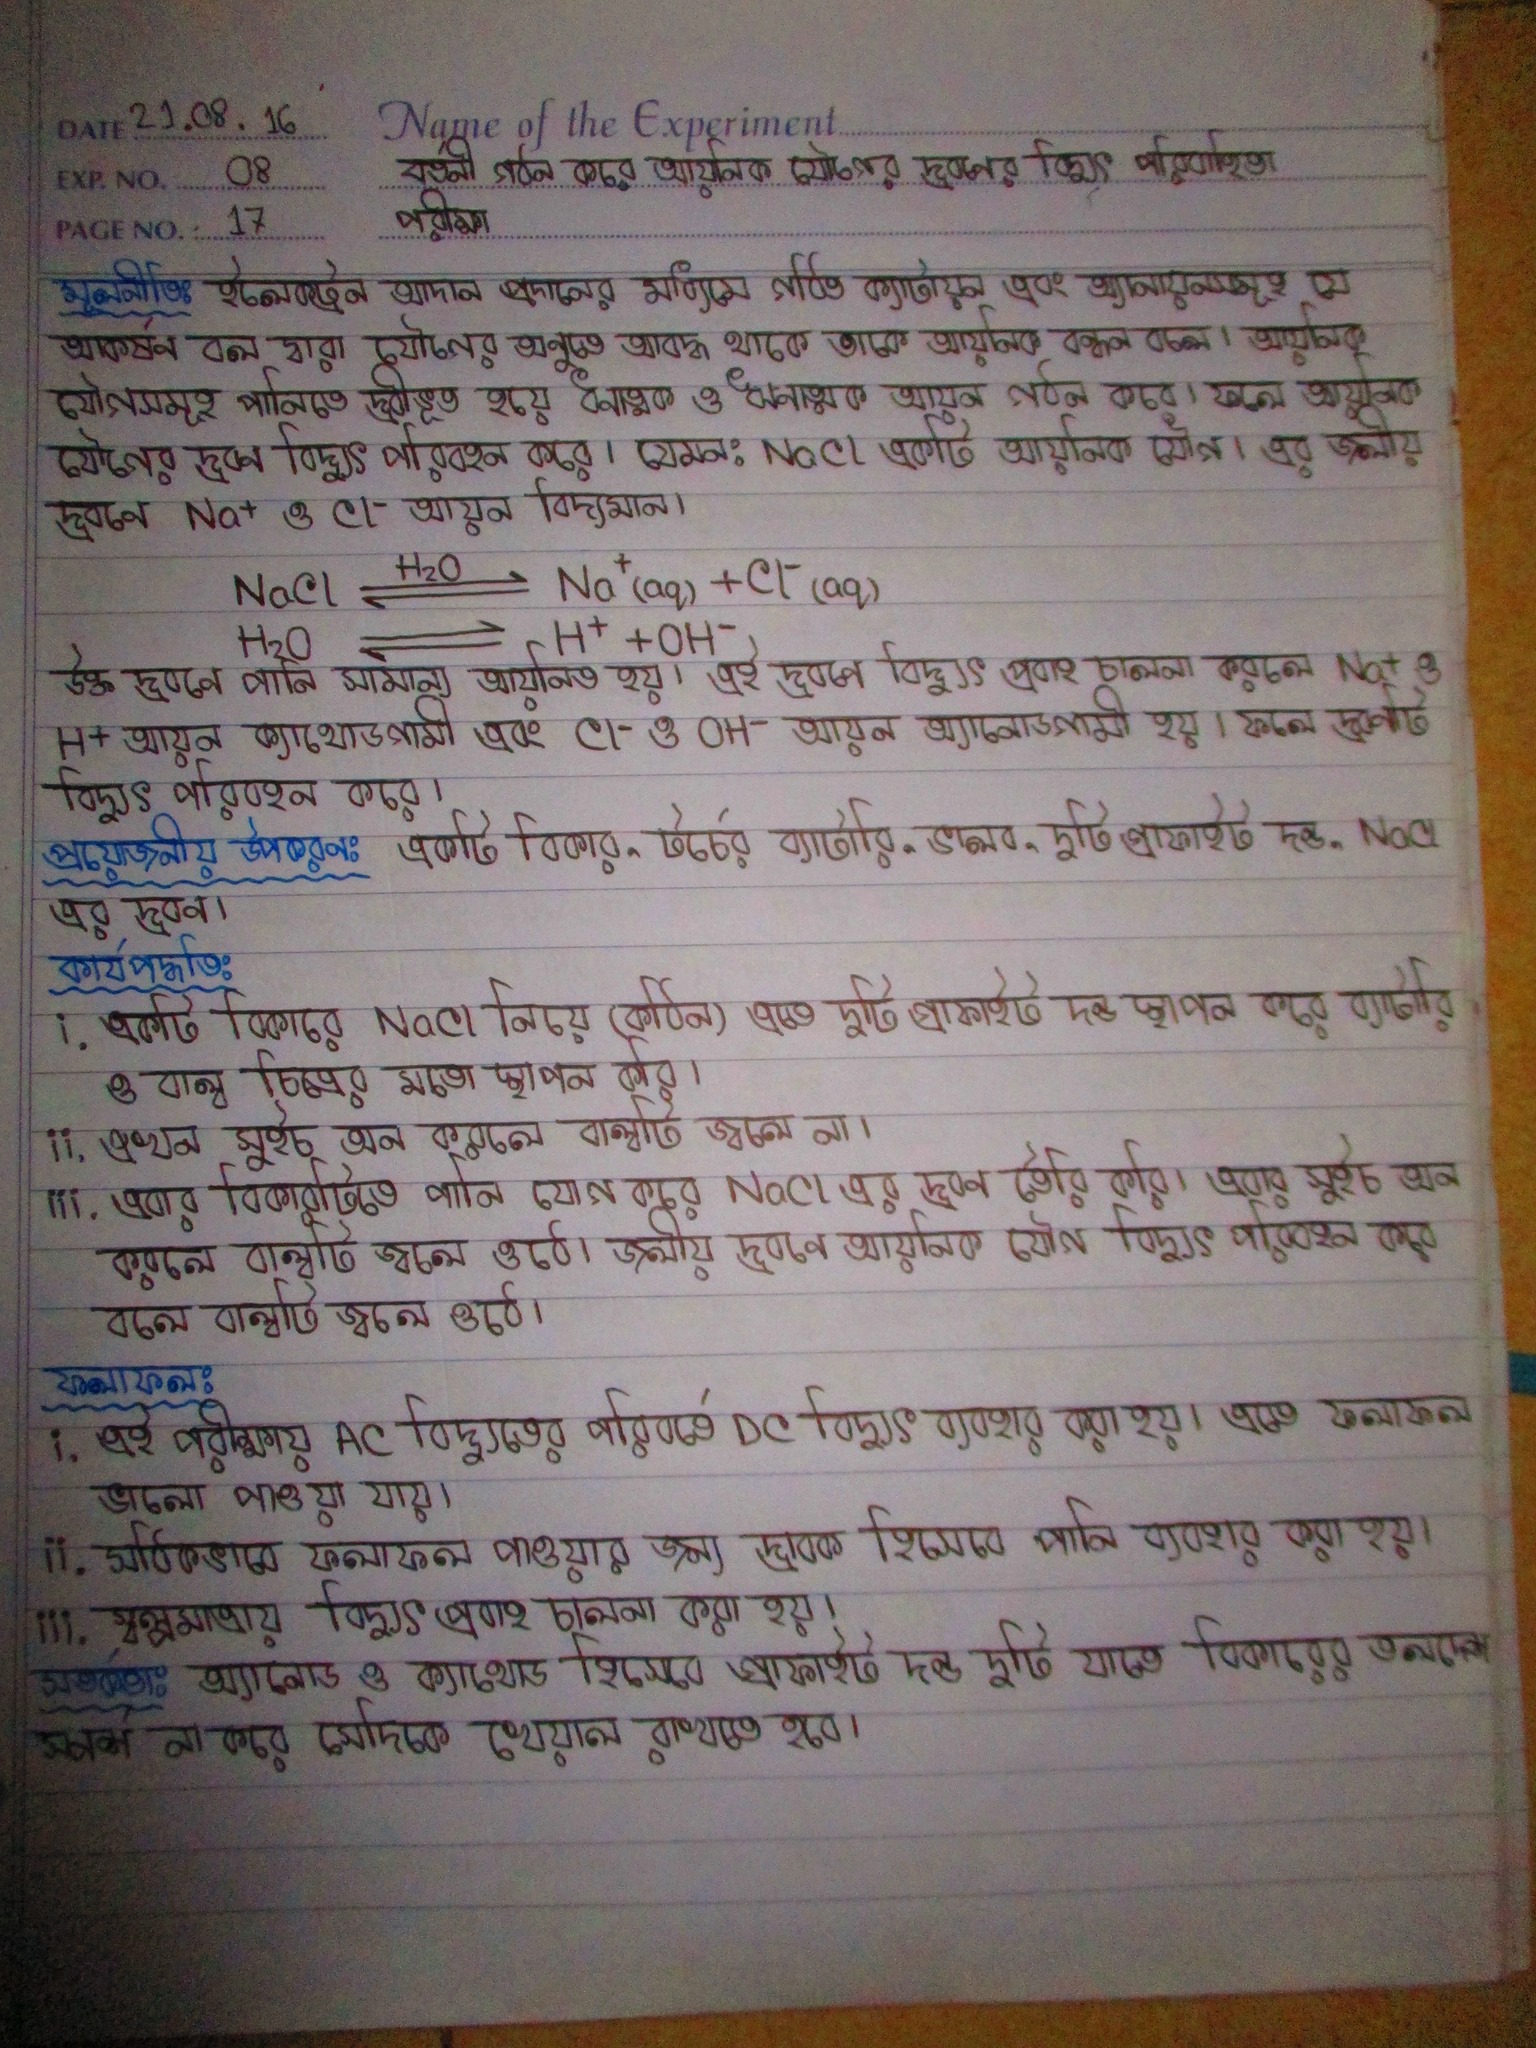 DATE 21.08.16 Name of the Experiment
EXP. NO. 08 বর্তনী গঠন করে আয়নিক যৌগের দ্রবণের বিদ্যুৎ পরিবাহিতা
PAGE NO. : 17 পরীক্ষা
মূলনীতিঃ ইলেকট্রন আদান প্রদানের মাধ্যমে গঠিত ক্যাটায়ন এবং অ্যানায়নসমূহ যে
আকর্ষন বল দ্বারা যৌগের অনুতে আবদ্ধ থাকে তাকে আয়নিক বন্ধন বলে। আয়নিক
যৌগসমূহ পানিতে দ্রবীভূত হয়ে ধনাত্মক ও ঋনাত্মক আয়ন গঠন করে। ফলে আয়নিক
যৌগের দ্রবন বিদ্যুৎ পরিবহন করে। যেমনঃ NaCl একটি আয়নিক যৌগ। এর জলীয়
দ্রবনে Na+ ও Cl- আয়ন বিদ্যমান।
NaCl ⇌ H₂O Na⁺(aq) + Cl⁻(aq)
H₂O ⇌ H⁺ + OH⁻
উক্ত দ্রবনে পানি সামান্য আয়নিত হয়। এই দ্রবনে বিদ্যুৎ প্রবাহ চালনা করলে Na+ ও
H+ আয়ন ক্যাথোডগামী এবং Cl- ও OH- আয়ন অ্যানোডগামী হয়। ফলে দ্রবণটি
বিদ্যুৎ পরিবহন করে।
প্রয়োজনীয় উপকরনঃ একটি বিকার, টর্চের ব্যাটারি, ভালব, দুটি গ্রাফাইট দন্ড, NaCl
এর দ্রবন।
কার্যপদ্ধতিঃ
i. একটি বিকারে NaCl নিয়ে (কঠিন) এতে দুটি গ্রাফাইট দন্ড স্থাপন করে ব্যাটারি
ও বাল্ব চিত্রের মতো স্থাপন করি।
ii. এখন সুইচ অন করলে বাল্বটি জ্বলে না।
iii. এবার বিকারটিতে পানি যোগ করে NaCl এর দ্রবন তৈরি করি। এবার সুইচ অন
করলে বাল্বটি জ্বলে ওঠে। জলীয় দ্রবণে আয়নিক যৌগ বিদ্যুৎ পরিবহন করে
বলে বাল্বটি জ্বলে ওঠে।
ফলাফলঃ
i. এই পরীক্ষায় AC বিদ্যুতের পরিবর্তে DC বিদ্যুৎ ব্যবহার করা হয়। এতে ফলাফল
ভালো পাওয়া যায়।
ii. সঠিকভাবে ফলাফল পাওয়ার জন্য দ্রাবক হিসেবে পানি ব্যবহার করা হয়।
iii. স্বল্পমাত্রায় বিদ্যুৎ প্রবাহ চালনা করা হয়।
সতর্কতাঃ অ্যানোড ও ক্যাথোড হিসেবে গ্রাফাইট দন্ড দুটি যাতে বিকারের তলদেশ
স্পর্শ না করে সেদিকে খেয়াল রাখতে হবে।